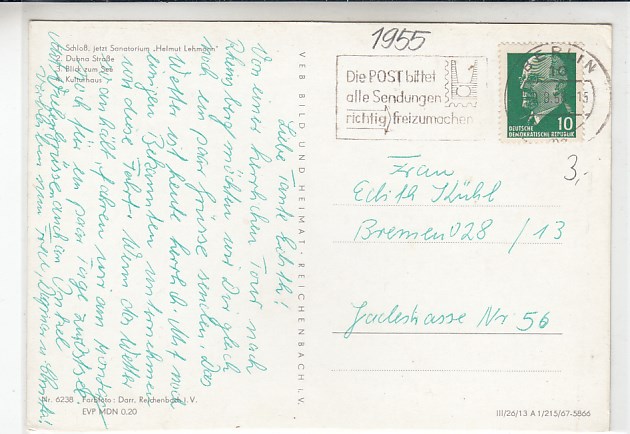 1955
1. Schloß, jetzt Sanatorium „Helmut Lehmann“
2. Dubna Straße
3. Blick zum See
4. Kulturhaus
Liebe Tante Edith!
Von einer herrlichen Tour nach
Rheinsberg möchten wir Dir gleich
noch ein paar Grüsse senden. Das
Wetter ist heute herrlich. Mit noch
einigen Bekannten unternehmen
wir diese Fahrt. Wenn das Wetter
hält, fahren wir am Montag
noch für ein paar Tage
Grüssen auch an Onkel
von
Nr. 6238 Farbfoto: Darr, Reichenbach i. V.
EVP MDN 0,20
VEB BILD UND HEIMAT · REICHENBACH i. V.
Die POST bittet
alle Sendungen
richtig freizumachen
BERLIN
DEUTSCHE
DEMOKRATISCHE REPUBLIK
10
3,-
Frau
Edith Kühl
Bremen 028 / 13
Jadestrasse Nr 56
III/26/13 A 1/215/67-5866